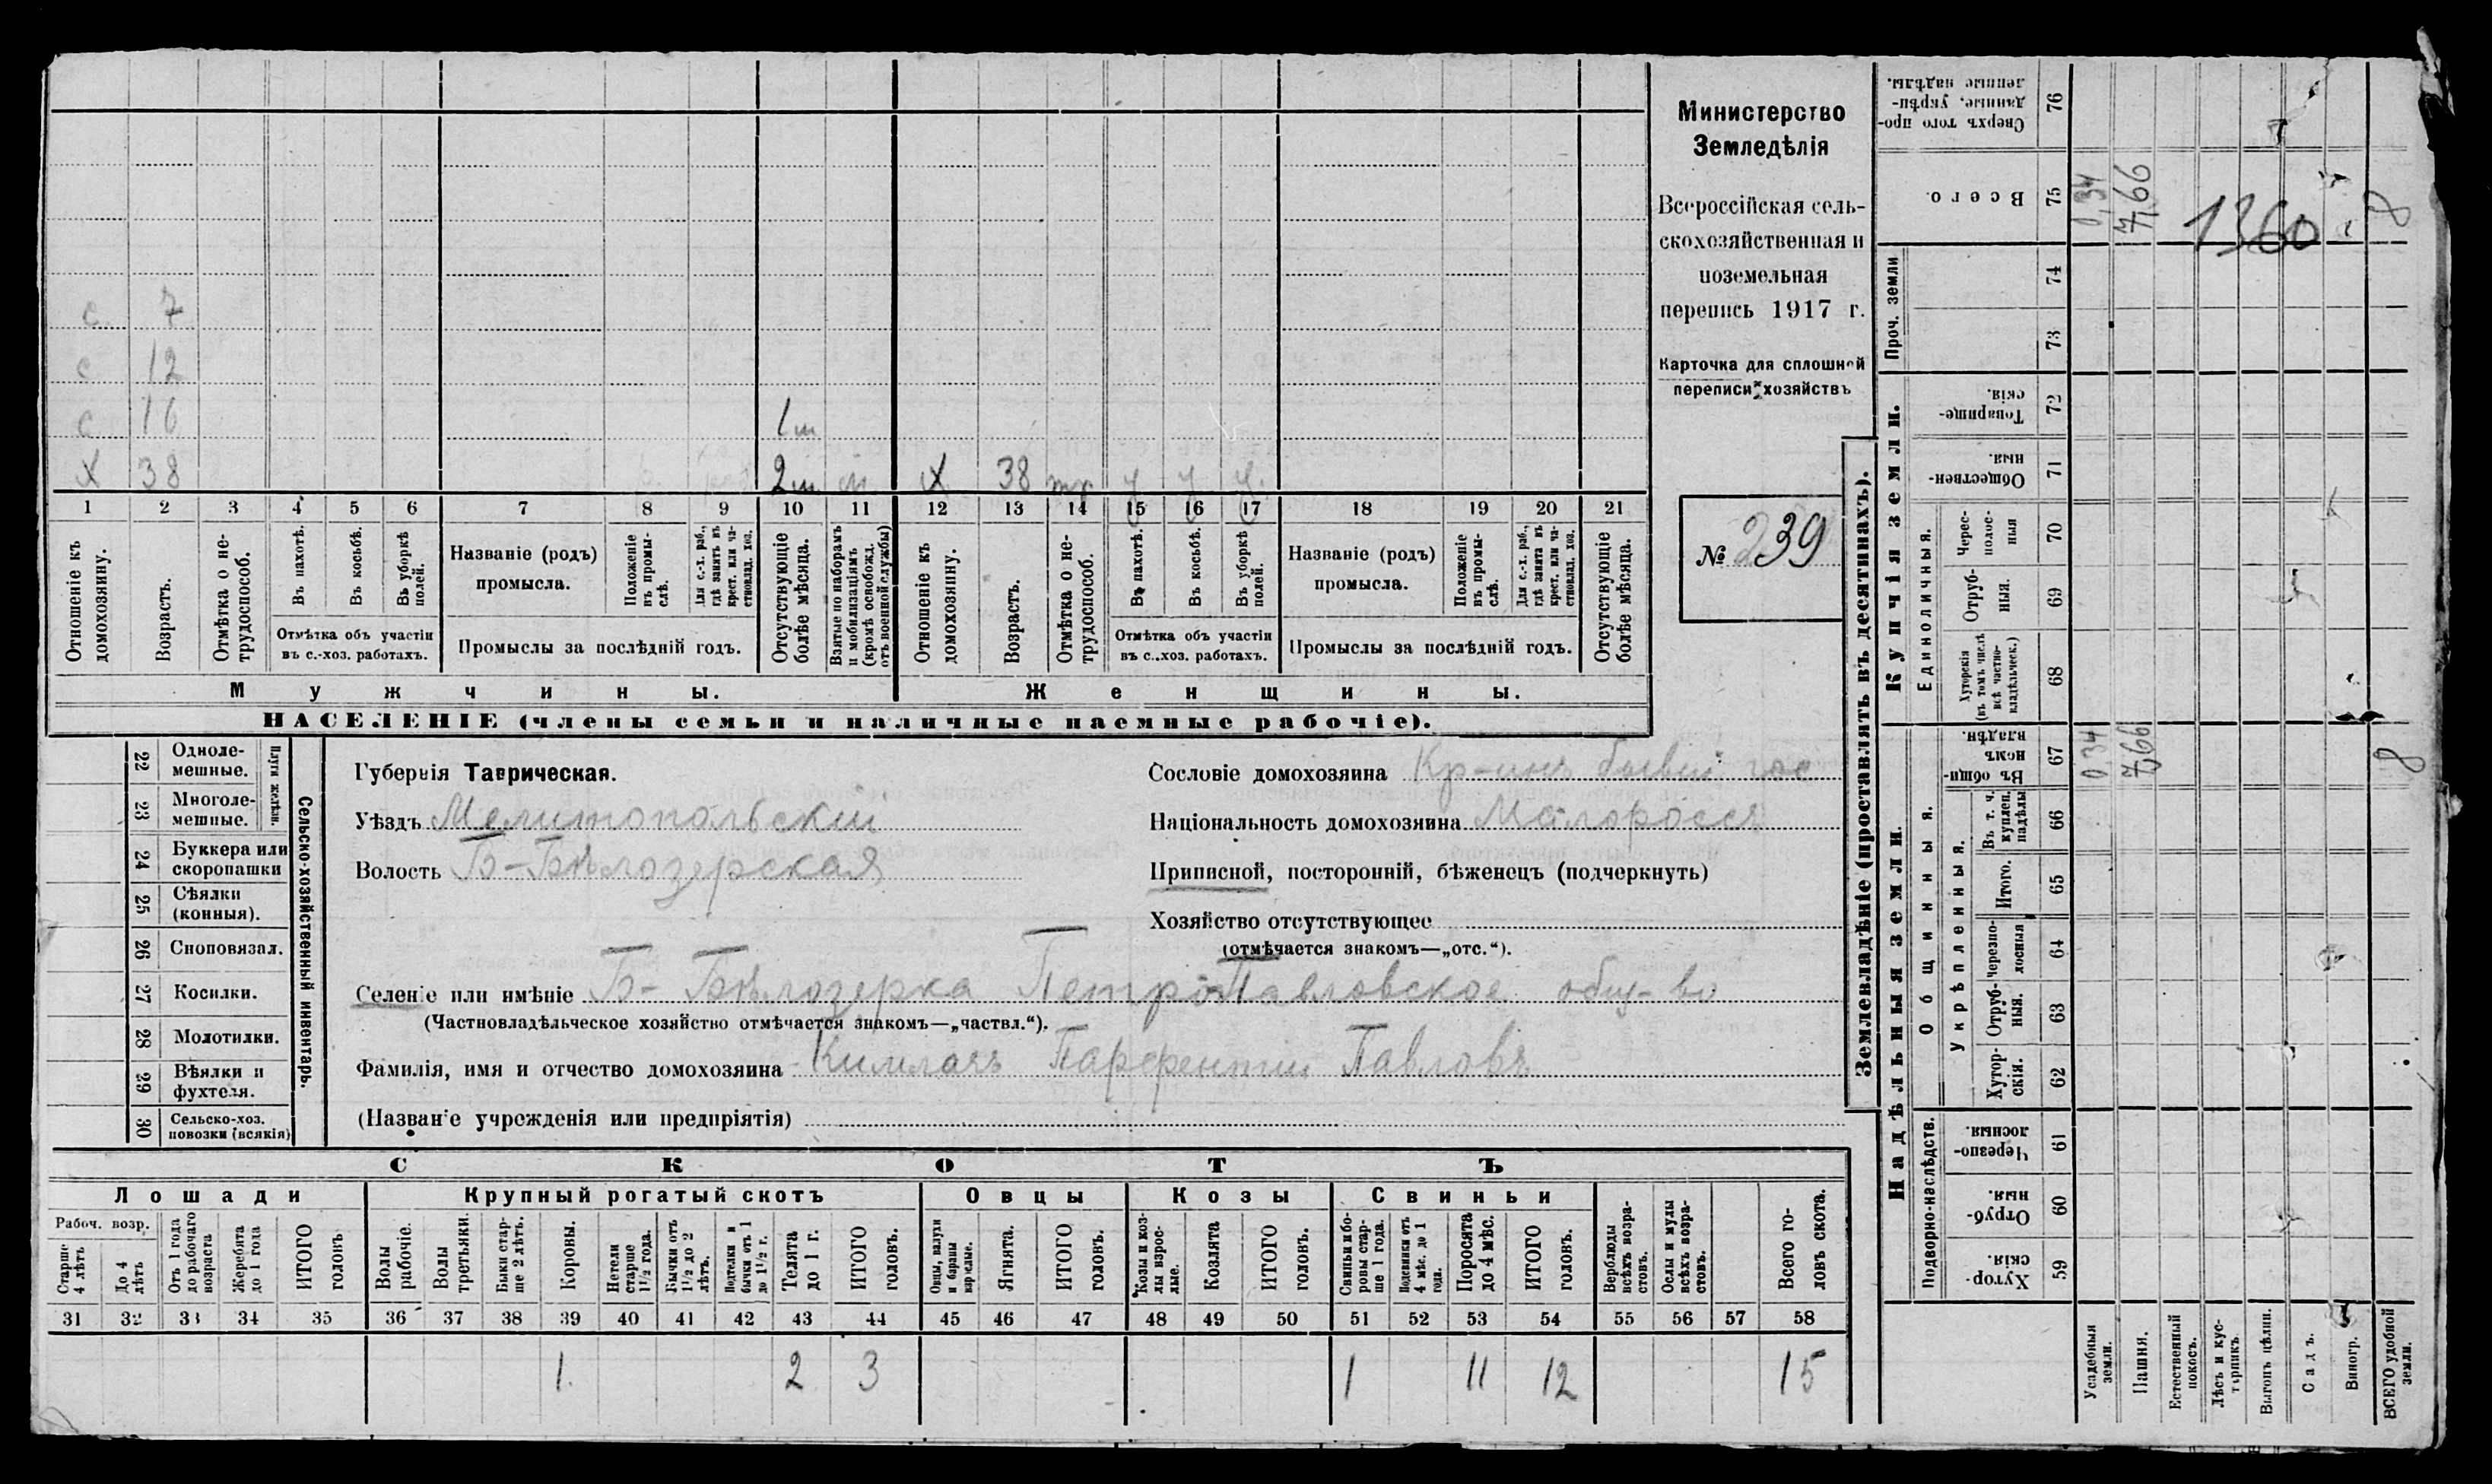 с 7
с 12
с 16 1 ш
х 38 2 ш м х 38 тр у у у
1 2 3 4 5 6 7 8 9 10 11 12 13 14 15 16 17 18 19 20 21
Отношеніе къ домохозяину.
Возрастъ.
Отмѣтка о не-трудоспособ.
Въ пахотѣ.
Въ косьбѣ.
Въ уборкѣ полей.
Отмѣтка объ участіи въ с.-хоз. работахъ.
Названіе (родъ) промысла.
Положеніе въ промы-слѣ.
Для с.-х. раб., гдѣ занятъ въ крест. или ча-стновлад. хоз.
Промыслы за послѣдній годъ.
Отсутствующіе болѣе мѣсяца.
Взятые по наборамъ и мобилизаціямъ (кромѣ освобожд. отъ военной службы)
Отношеніе къ домохозяину.
Возрастъ.
Отмѣтка о не-трудоспособ.
Въ пахотѣ.
Въ косьбѣ.
Въ уборкѣ полей.
Отмѣтка объ участіи въ с.-хоз. работахъ.
Названіе (родъ) промысла.
Положеніе въ промы-слѣ.
Для с.-х. раб., гдѣ занята въ крест. или ча-стновлад. хоз.
Промыслы за послѣдній годъ.
Отсутствующіе болѣе мѣсяца.
Мужчины. Женщины.
НАСЕЛЕНІЕ (члены семьи и наличные наемные рабочіе).
Министерство
Земледѣлія
Всероссійская сель-
скохозяйственная и
поземельная
перепись 1917 г.
Карточка для сплошной
переписи хозяйствъ
№ 239
22 Одноле-мешные.
23 Многоле-мешные.
Плуги желѣзн.
24 Буккера или скоропашки
25 Сѣялки (конныя).
26 Сноповязал.
27 Косилки.
28 Молотилки.
29 Вѣялки и фухтеля.
30 Сельско-хоз. повозки (всякія)
Сельско-хозяйственный инвентарь.
Губернія Таврическая.
Уѣздъ Мелитопольскій
Волость Б-Бѣлозерская
Сословіе домохозяина Кр-инъ бывш. гос
Національность домохозяина Малороссъ
Приписной, посторонній, бѣженецъ (подчеркнуть)
Хозяйство отсутствующее
(отмѣчается знакомъ—„отс.“).
Селеніе или имѣніе Б- Бѣлозерка Петро-Павловское общ-во
(Частновладѣльческое хозяйство отмѣчается знакомъ—„частвл.“).
Фамилія, имя и отчество домохозяина Кимлачъ Парфентій Павловъ
(Названіе учрежденія или предпріятія)
СКОТЪ
Лошади Крупный рогатый скотъ Овцы Козы Свиньи
Рабоч. возр.
Старше 4 лѣтъ
До 4 лѣтъ
Отъ 1 года до рабочаго возраста
Жеребята до 1 года
ИТОГО головъ.
Волы рабочіе.
Волы третьяки.
Быки стар-ше 2 лѣтъ.
Коровы.
Нетели старше 1½ года.
Бычки отъ 1½ до 2 лѣтъ.
Подтелки и бычки отъ 1 до 1½ г.
Телята до 1 г.
ИТОГО головъ.
Овцы, валухи и бараны взрослые.
Ягнята.
ИТОГО головъ.
Козы и коз-лы взрос-лые.
Козлята
ИТОГО головъ.
Свиньи и бо-ровы стар-ше 1 года.
Подсвинки отъ 4 мѣс. до 1 года.
Поросята до 4 мѣс.
ИТОГО головъ.
Верблюды всѣхъ возра-стовъ.
Ослы и мулы всѣхъ возра-стовъ.
Всего го-ловъ скота.
31 32 33 34 35 36 37 38 39 40 41 42 43 44 45 46 47 48 49 50 51 52 53 54 55 56 57 58
1. 2 3 1 11 12 15
Землевладѣніе (проставлять въ десятинахъ).
Купчія земли.
Надѣльныя земли.
Сверхъ того про-данные, укрѣп-ленные надѣлы. 76
Всего. 75 0,34 7,66 1360 8
Проч. земли 74 73
Товарище-скія. 72
Обществен-ныя. 71
Единоличныя.
Черес-полос-ныя 70
Отруб-ныя. 69
Хуторскія (въ томъ числѣ всѣ частно-владѣльческ.) 68
Общинныя.
Въ общин-номъ владѣн. 67 0,34 7,66 8
Укрѣпленныя.
Въ т. ч. куплен. надѣлы 66
Итого. 65
Черезпо-лосныя 64
Отруб-ныя. 63
Хутор-скія. 62
Подворно-наслѣдств.
Черезпо-лосныя. 61
Отруб-ныя. 60
Хутор-скія. 59
Усадебныя земли.
Пашня.
Естественный покосъ.
Лѣсъ и кус-тарникъ
Выгонъ цѣлин.
Садъ.
Виногр.
ВСЕГО удобной земли.